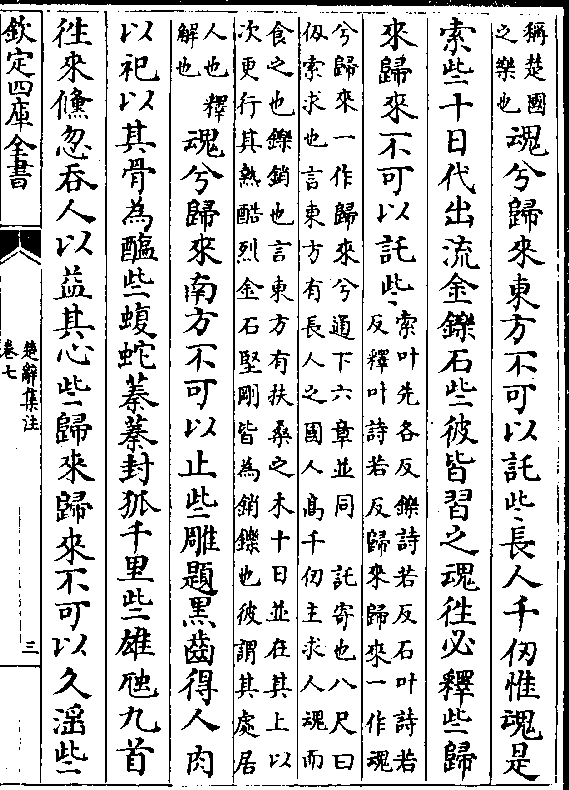 稱楚國
之樂也
魂兮歸來東方不可以託些長人千仭惟魂是
索些十日代出流金鑠石些彼皆習之魂徃必釋些歸
來歸來不可以託些
索叶先各反鑠詩若反石叶詩若
反釋叶詩若反歸來歸來一作魂
兮歸來一作歸來兮適下六章並同　託寄也八尺曰
仭索求也言東方有長人之國人髙千仭主求人魂而
食之也鑠銷也言東方有扶桑之木十日並在其上以
次更行其熱酷烈金石堅剛皆為銷鑠也彼謂其處居
人也　釋
解也
魂兮歸來南方不可以止些雕題黑齒得人肉
以祀以其骨為醢些蝮蛇蓁蓁封狐千里些雄虺九首
徃來儵忽吞人以益其心些歸來歸來不可以久滛些
欽定四庫全書
楚辭集注
卷七
三